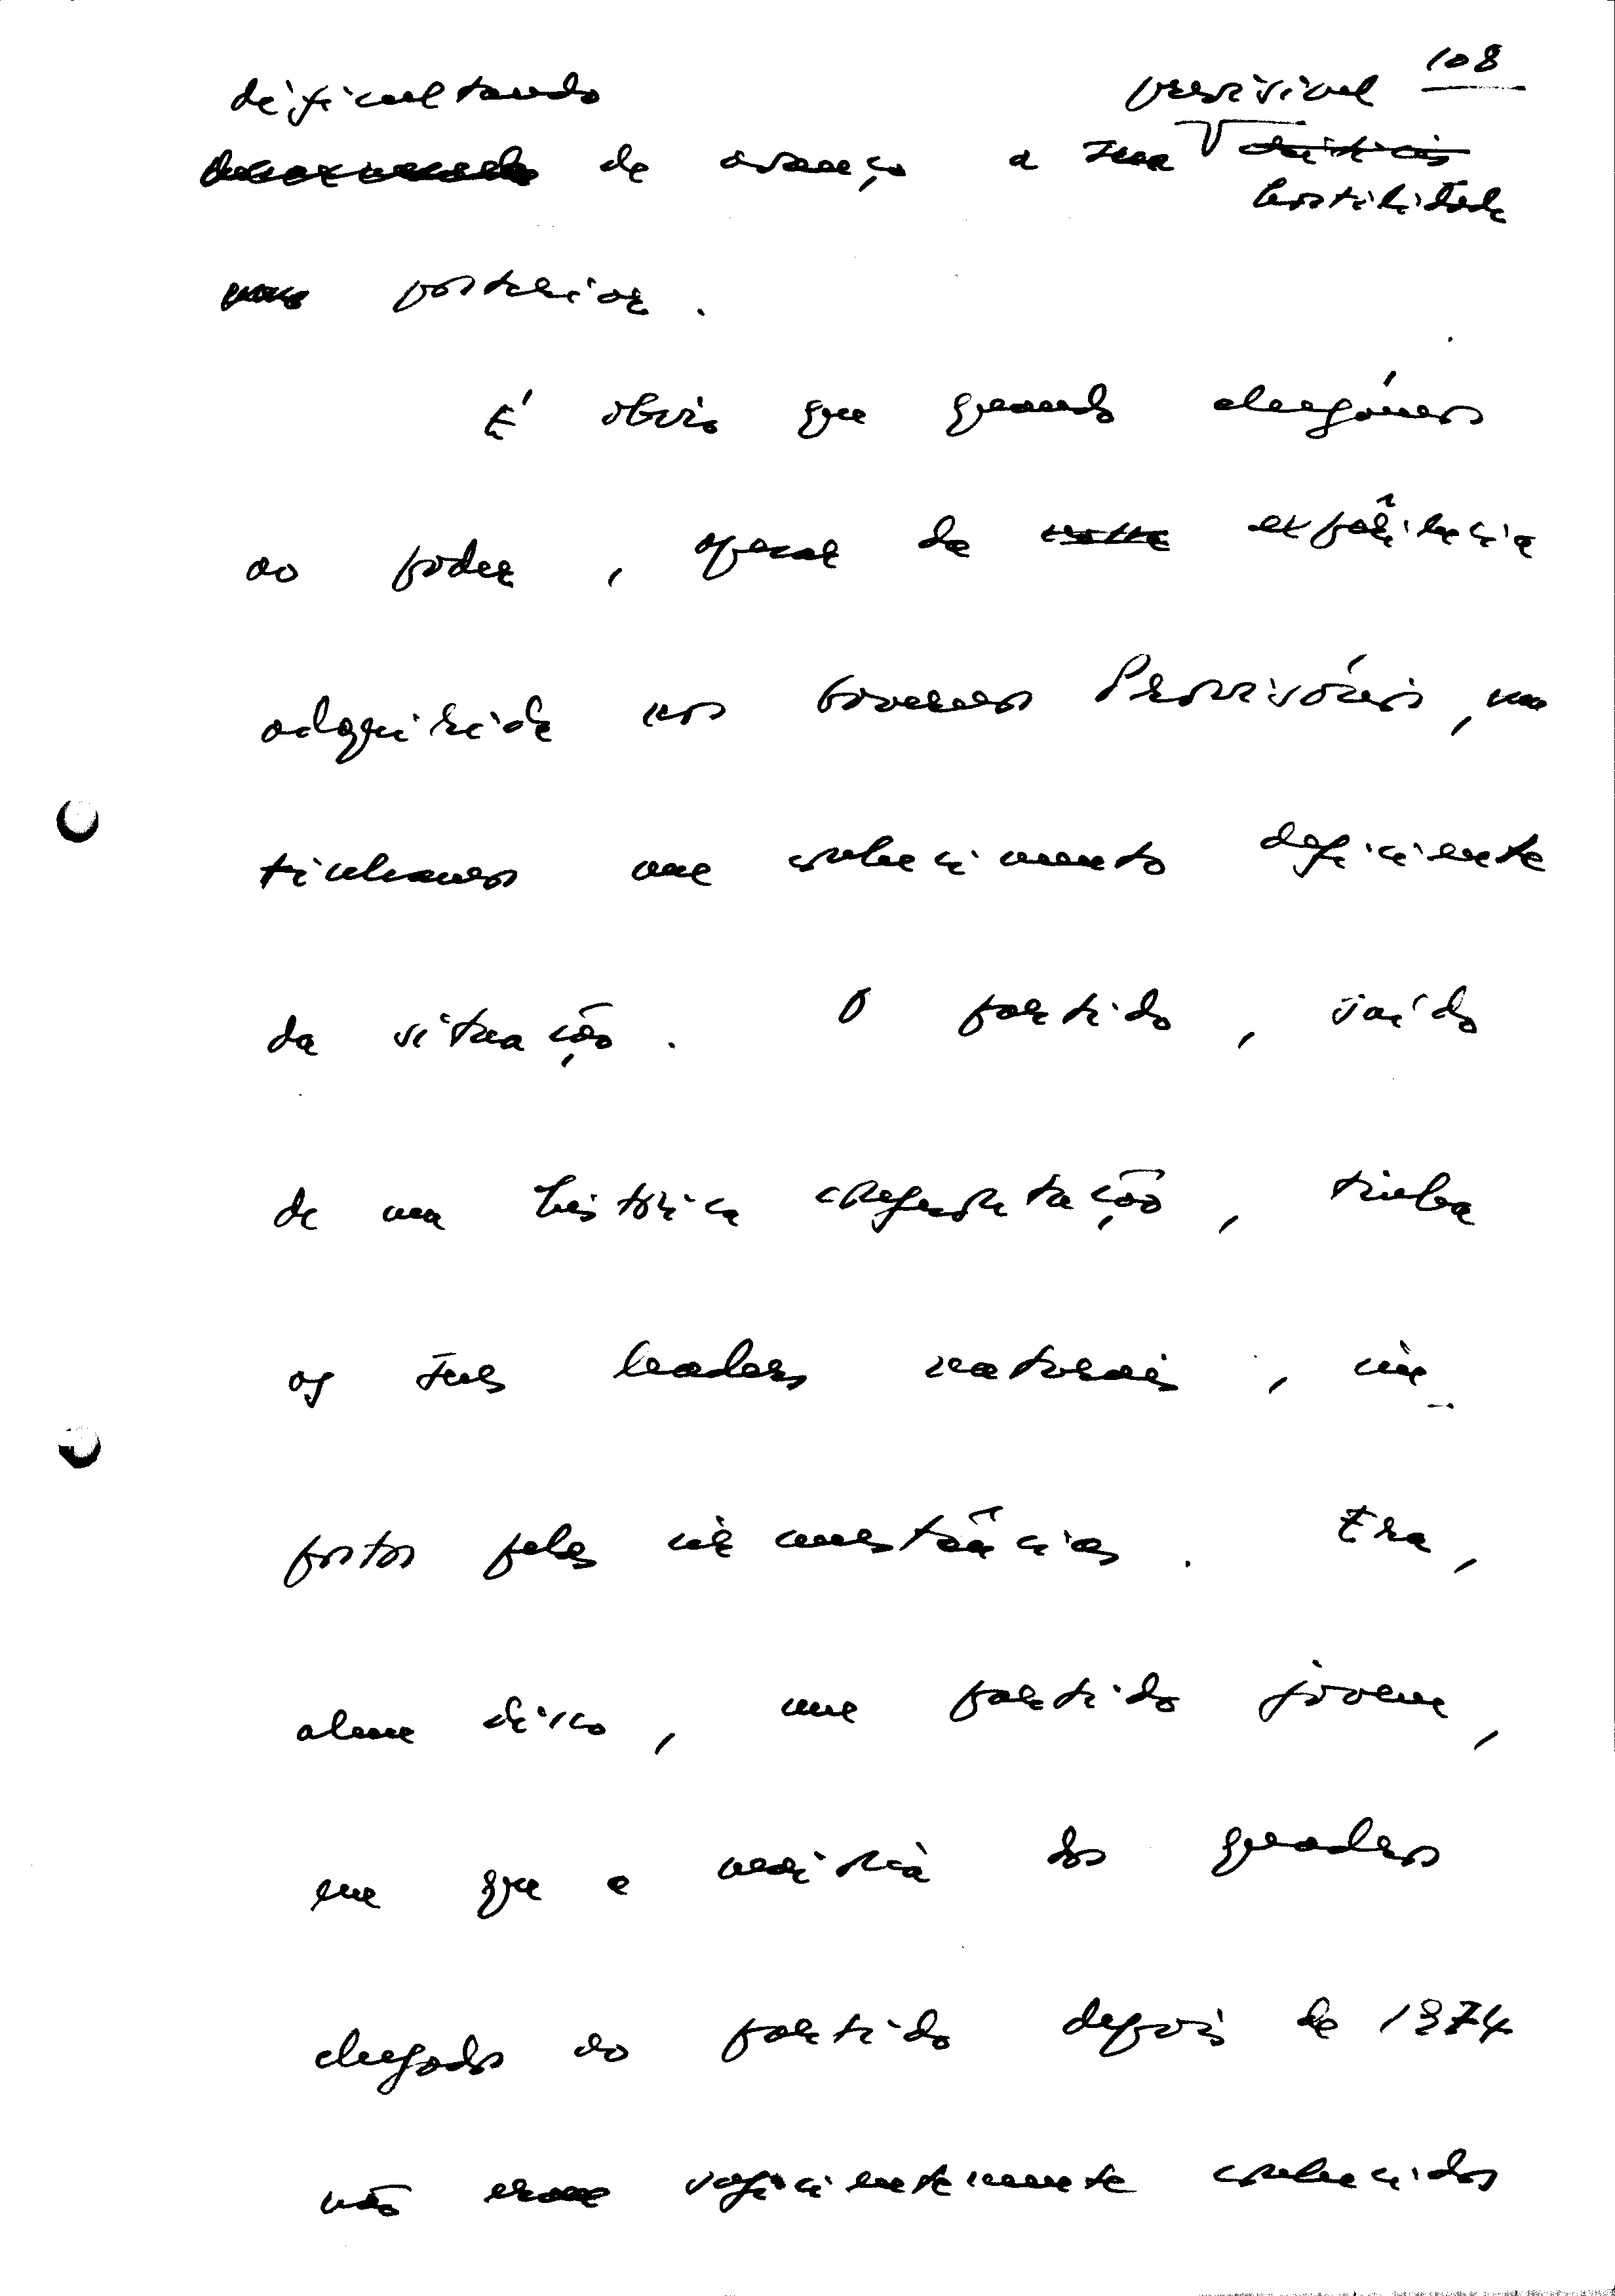 108
dificultando previsível
de avanço a sua
hostilidade
posterior.
É óbvio que quando chegámos
ao poder, apesar da experiência
adquirida nos Governos Provisórios, nos
tinhamos um conhecimento deficiente
da situação. O partido, saído
de uma histórica, tinha
os seus leaders naturais, im-
postos pelas circunstâncias. Era,
alem disso, um partido jovem,
em que a maioria dos quadros
chegados ao partido depois de 1974
não eram suficientemente conhecidos